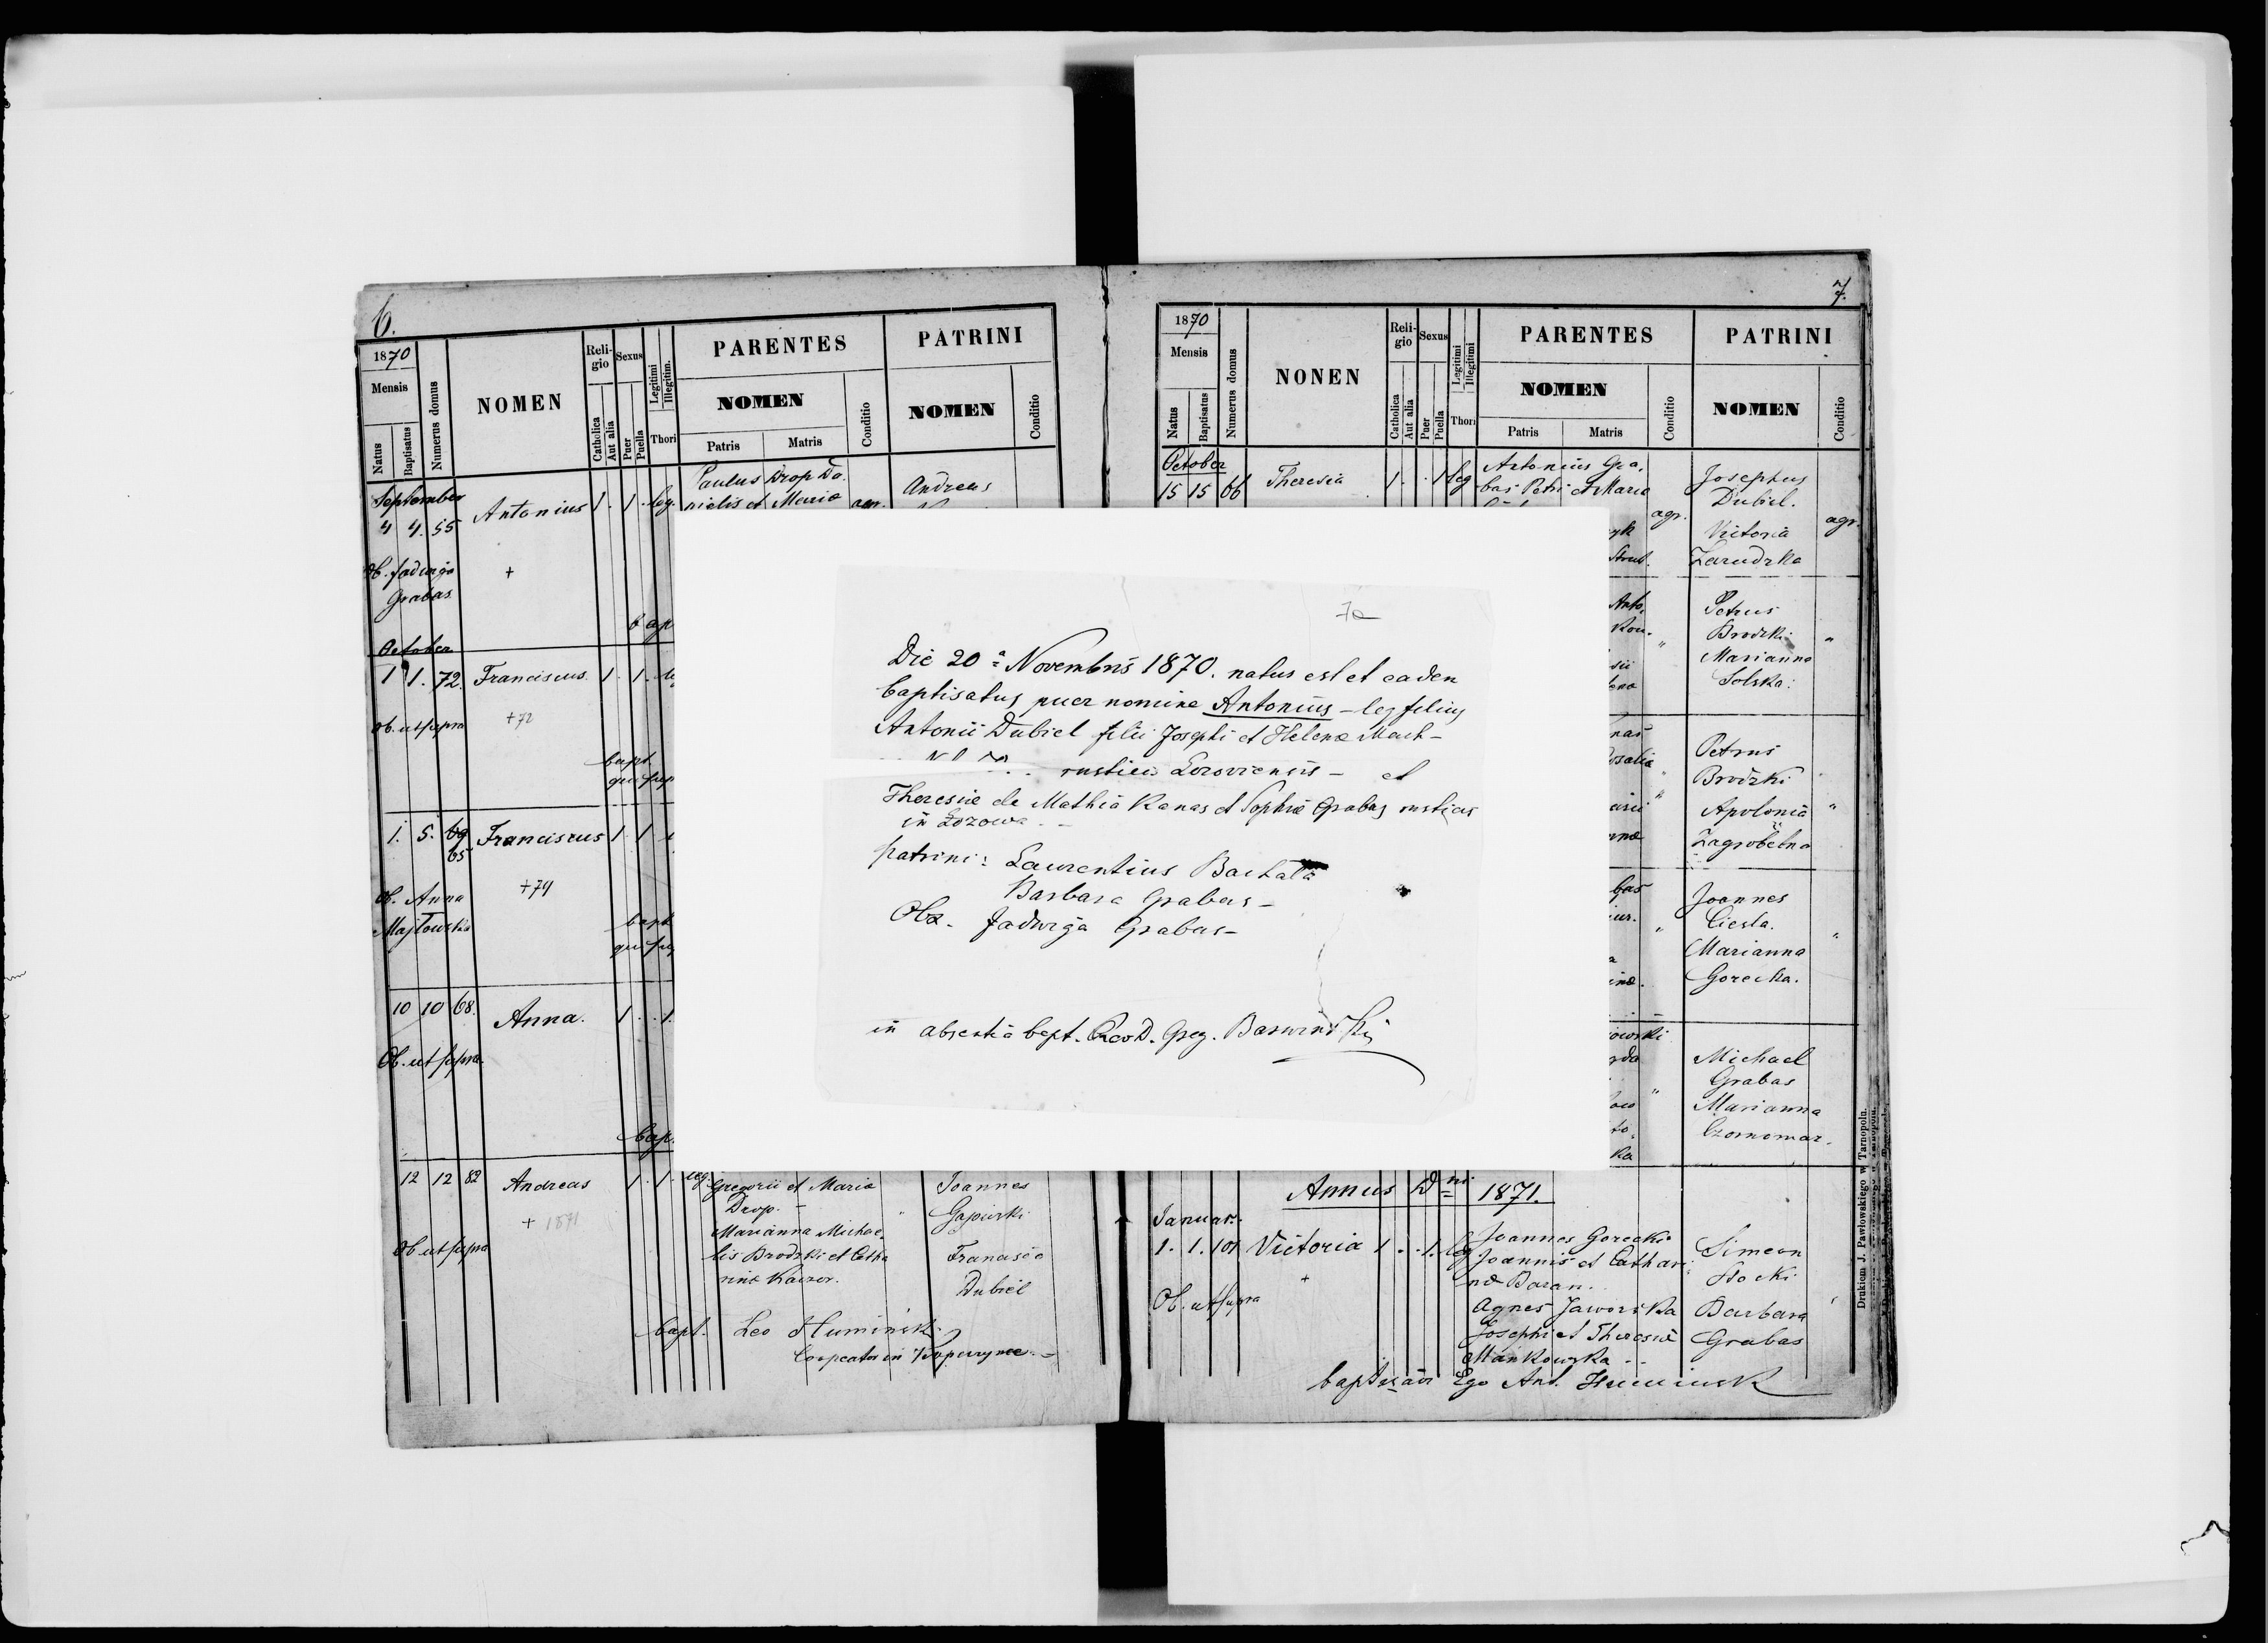 6.
1870
Mensis
Natus
Baptisatus
Numerus domus
NOMEN
Reli-
gio
Catholica
Aut alia
Sexus
Puer
Puella
Legitimi
Illegitim.
Thori
PARENTES
NOMEN
Patris
Matris
Conditio
PATRINI
NOMEN
Conditio
September
4 4. 55 Antonius 1. 1. leg.
Paulus Drop Da.
nielis et Maria agr.
Andreas
Ob. Jadwiga
Grabas
+
bap
October
1 1. 72. Franciscus. 1. 1.
Ob. ut supra +72
bapt.
qui sup
1. 5. 69 Franciscus 1 1
65
Ob. Anna +74
Majtowska
bapt
qui sup
10 10 68. Anna. 1 . . 1.
Ob. ut supra
bap.
12 12 82 Andreas 1. 1. leg.
+ 1871
Ob ut supra
Gregorii et Maria
Drop. -
Marianna Michae.
lis Brodzki et Catha
rinæ Kaczor.
Joannes
Gapiński
Dubiel
bapt. Leo Humiński
Cooperator in
7a
Die 20ª Novembris 1870. natus est et eadem
baptisatus puer nomine Antonius - leg filius
Antonii Dubiel filii Josephi et Helenæ Mach-
rustici Lozoviensis - et
Theresiæ de Mathia Kanas et Sophiæ Grabas rusticis
in Łozowa. -
patrini: Laurentius
Barbara Grabas -
Obs. Jadwiga Grabas -
in absentia bapt. Greg.
7.
1870
Mensis
Natus
Baptisatus
Numerus domus
NONEN
Reli-
gio
Catholica
Aut alia
Sexus
Puer
Puella
Legitimi
Illegitimi
Thori
PARENTES
NOMEN
Patris
Matris
Conditio
PATRINI
NOMEN
Conditio
October
15 15 66 Theresia 1. . 1 leg
Antonius Gra.
bas Petri et Maria
agr.
Josephus
Dubiel.
Victoria
Zarudzka
agr.
Petrus
Brodzki
Marianna
Solska.
Petrus
Brodzki
Apolonia
Zagrobelna
Joannes
Ciesla.
Marianna
Gorecka.
Michael
Grabas
Marianna
Czornomaz.
Annus Dni 1871.
Januar.
1. 1. 101 Victoria 1 . . 1. leg
+
Ob. ut supra
Joannes Gorecki
Joannis et Cathari
næ Baran.
Agnes Jaworska
Josephi et Theresiæ
Mankowska. -
Simeon
Barbara
Grabas
Ego Ant.
Drukiem J. Pawłowskiego w Tarnopolu.